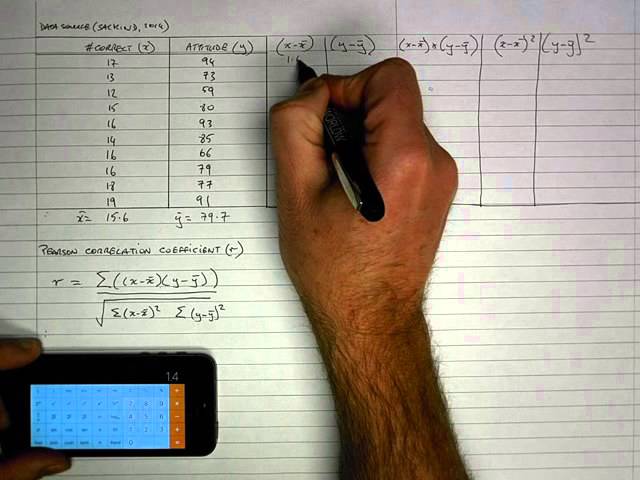 DATA SOURCE (SALKIND, 2014)
# CORRECT (x) ATTITUDE (y) (x-x̄) (y-ȳ) (x-x̄)×(y-ȳ) (x-x̄)² (y-ȳ)²
17 94
13 73
12 59
15 80
16 93
14 85
16 66
16 79
18 77
19 91
x̄ = 15.6 ȳ = 79.7
PEARSON CORRELATION COEFFICIENT (r)
r = Σ((x-x̄)(y-ȳ))
√Σ(x-x̄)² Σ(y-ȳ)²
1.4